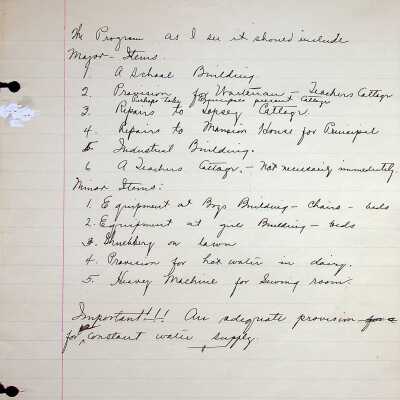 The Program as I see it should include
Major - Items.
1. A School Building.
2. Provision for Waterman - Teachers Cottage
Perhaps take Principals present Cottage
3. Repairs to Cottage.
4. Repairs to Mansion House for Principal
5. Industrial Building.
6 A Teachers Cottage. - Not necessarily immediately.
Minor Items:
1. Equipment at Boys Building - Chairs - beds
2. Equipment at girls Building - beds
3. Shrubbery on lawn
4. Provision for hot water in dairy.
5. Heavey Machine for Sewing room.
Important!!! An adequate provision for a
for constant water supply.